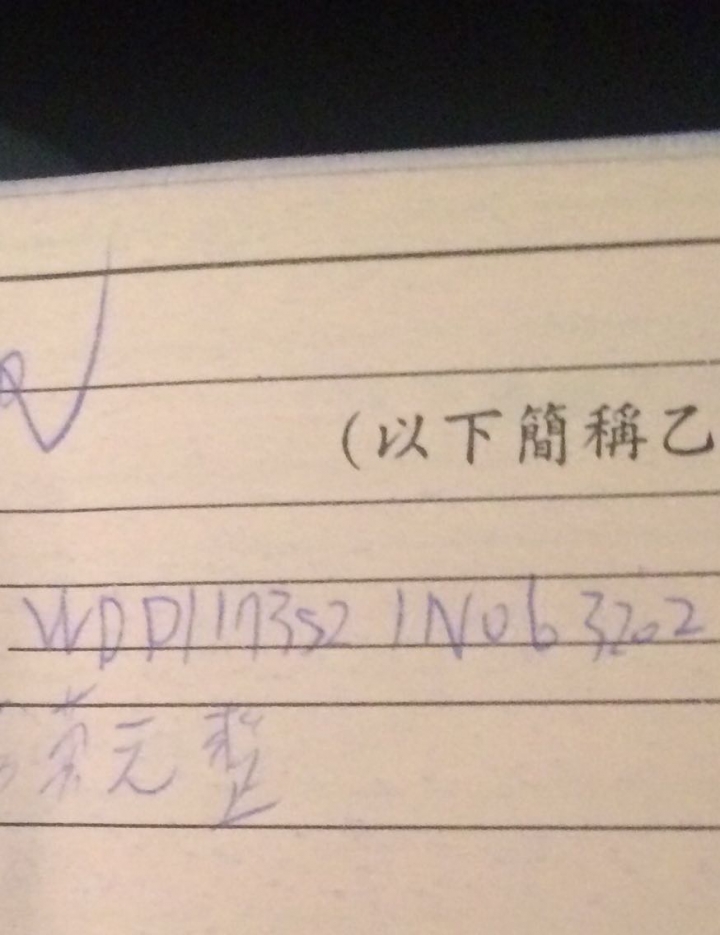 (以下簡稱乙
WDD1173521N063202
萬元整